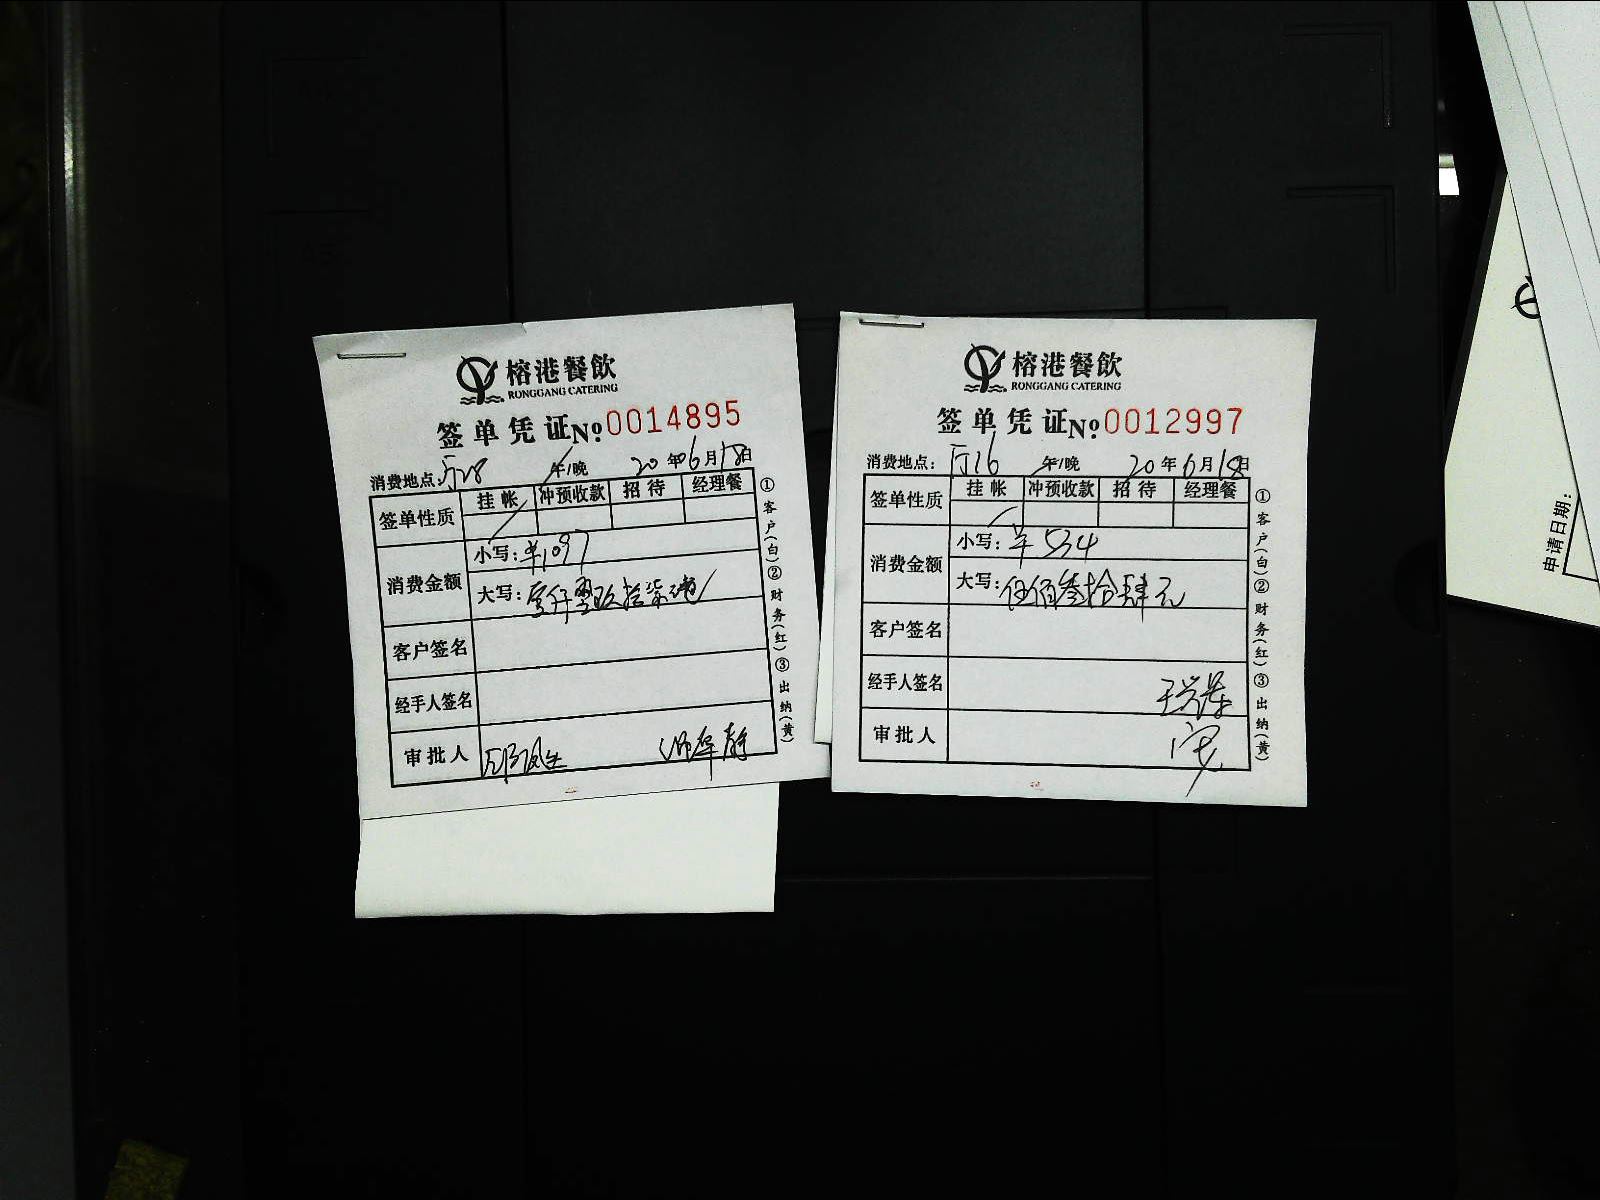 榕港餐飲
RONGGANG CATERING
签单凭证 №0014895
消费地点：厅28 午/晚 20年6月18日
签单性质 挂帐 冲预收款 招待 经理餐
消费金额 小写：¥1097
大写：壹仟零玖拾柒元
客户签名
经手人签名
审批人
①客户(白)②财务(红)③出纳(黄)
榕港餐飲
RONGGANG CATERING
签单凭证 №0012997
消费地点：厅16 午/晚 20年6月18日
签单性质 挂帐 冲预收款 招待 经理餐
消费金额 小写：¥534
大写：伍佰叁拾肆元
客户签名
经手人签名
审批人
①客户(白)②财务(红)③出纳(黄)
申请日期：